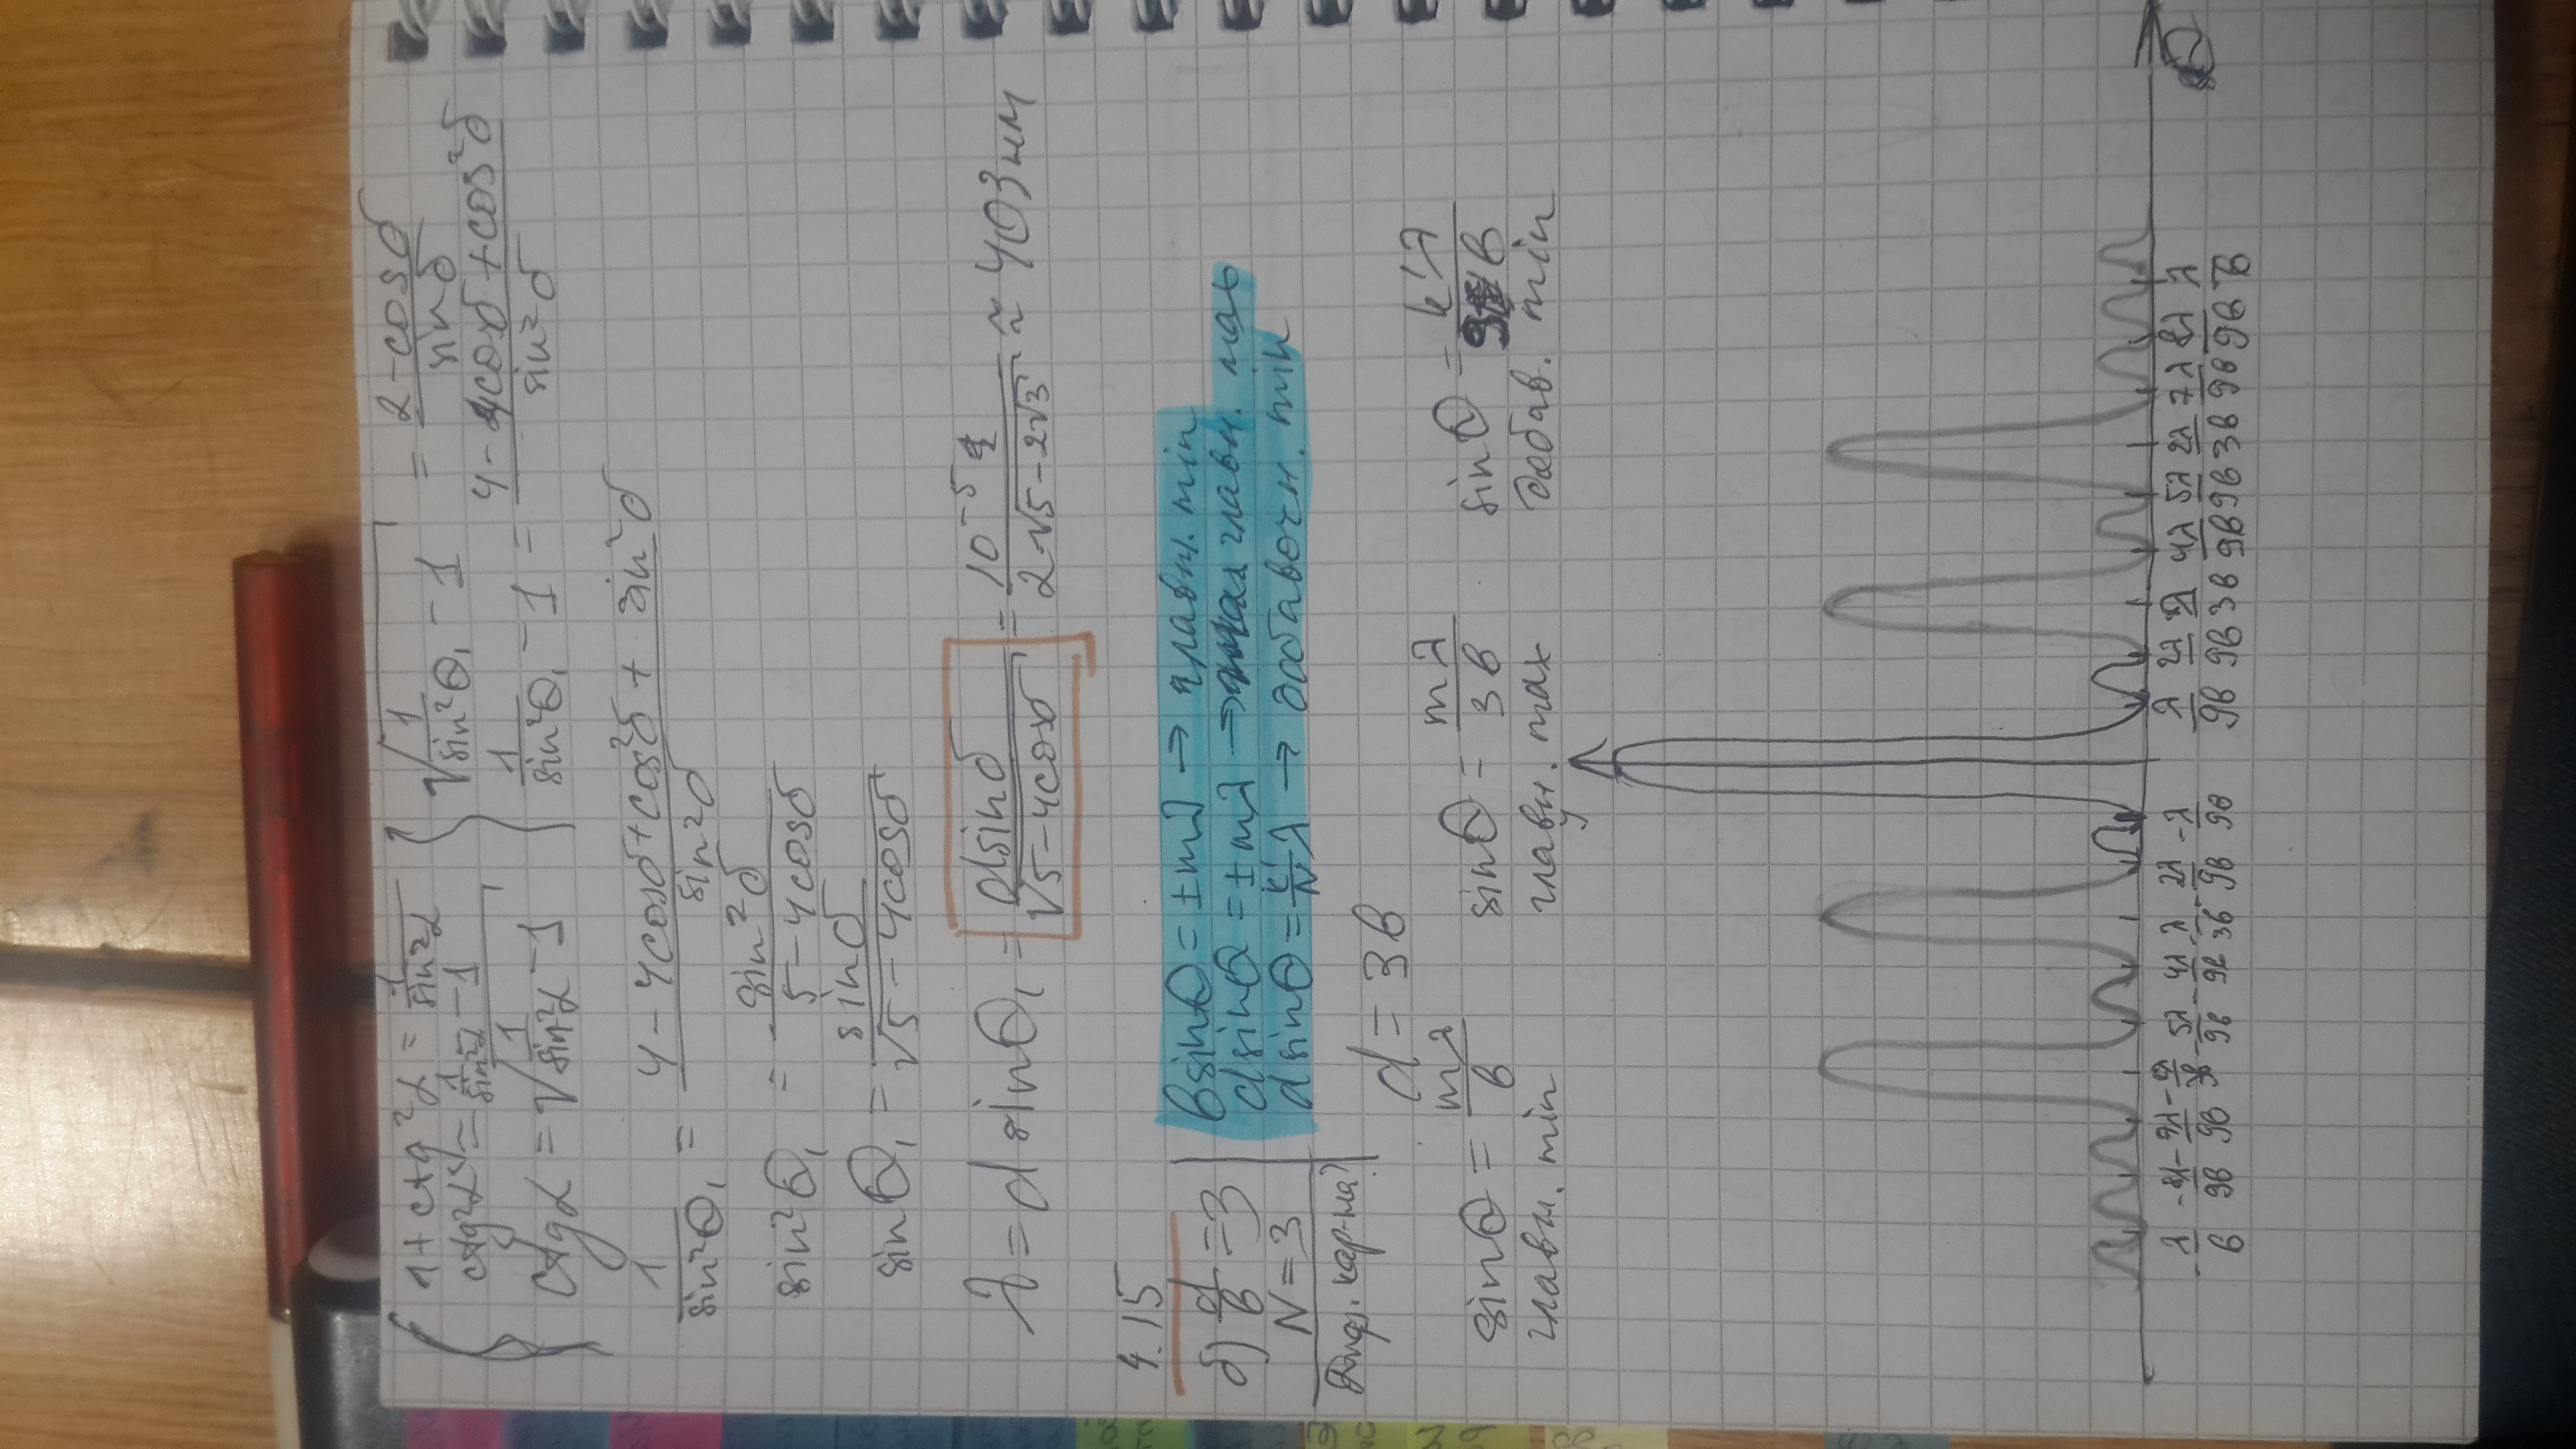 1 + ctg²α = 1/sin²α
ctg²α = 1/sin²α - 1
ctgα = √(1/sin²α - 1)
√(1/sin²Θ₁ - 1) = (2-cosδ)/sinδ
1/sin²Θ₁ - 1 = (4-4cosδ+cos²δ)/sin²δ
1/sin²Θ₁ = (4-4cosδ+cos²δ+sin²δ)/sin²δ
sin²Θ₁ = sin²δ/(5-4cosδ)
sinΘ₁ = sinδ/√(5-4cosδ)
λ = d sinΘ₁ = dsinδ/√(5-4cosδ) = 10⁻⁵/(2√(5-2√3)) ≈ 403 нм
4.15
б) d/b = 3
N = 3
Диф. кар-на?
bsinΘ = ±mλ → главн. min
dsinΘ = ±mλ → главн. max
dsinΘ = k'/N λ → добавочн. min
d = 3b
sinΘ = mλ/b sinΘ = mλ/3b sinΘ = k'λ/9b
главн. min главн. max добав. min
y
-λ/b -8λ/9b -7λ/9b -2λ/3b -5λ/9b -4λ/9b -λ/3b -2λ/9b -λ/9b λ/9b 2λ/9b λ/3b 4λ/9b 5λ/9b 2λ/3b 7λ/9b 8λ/9b λ/b